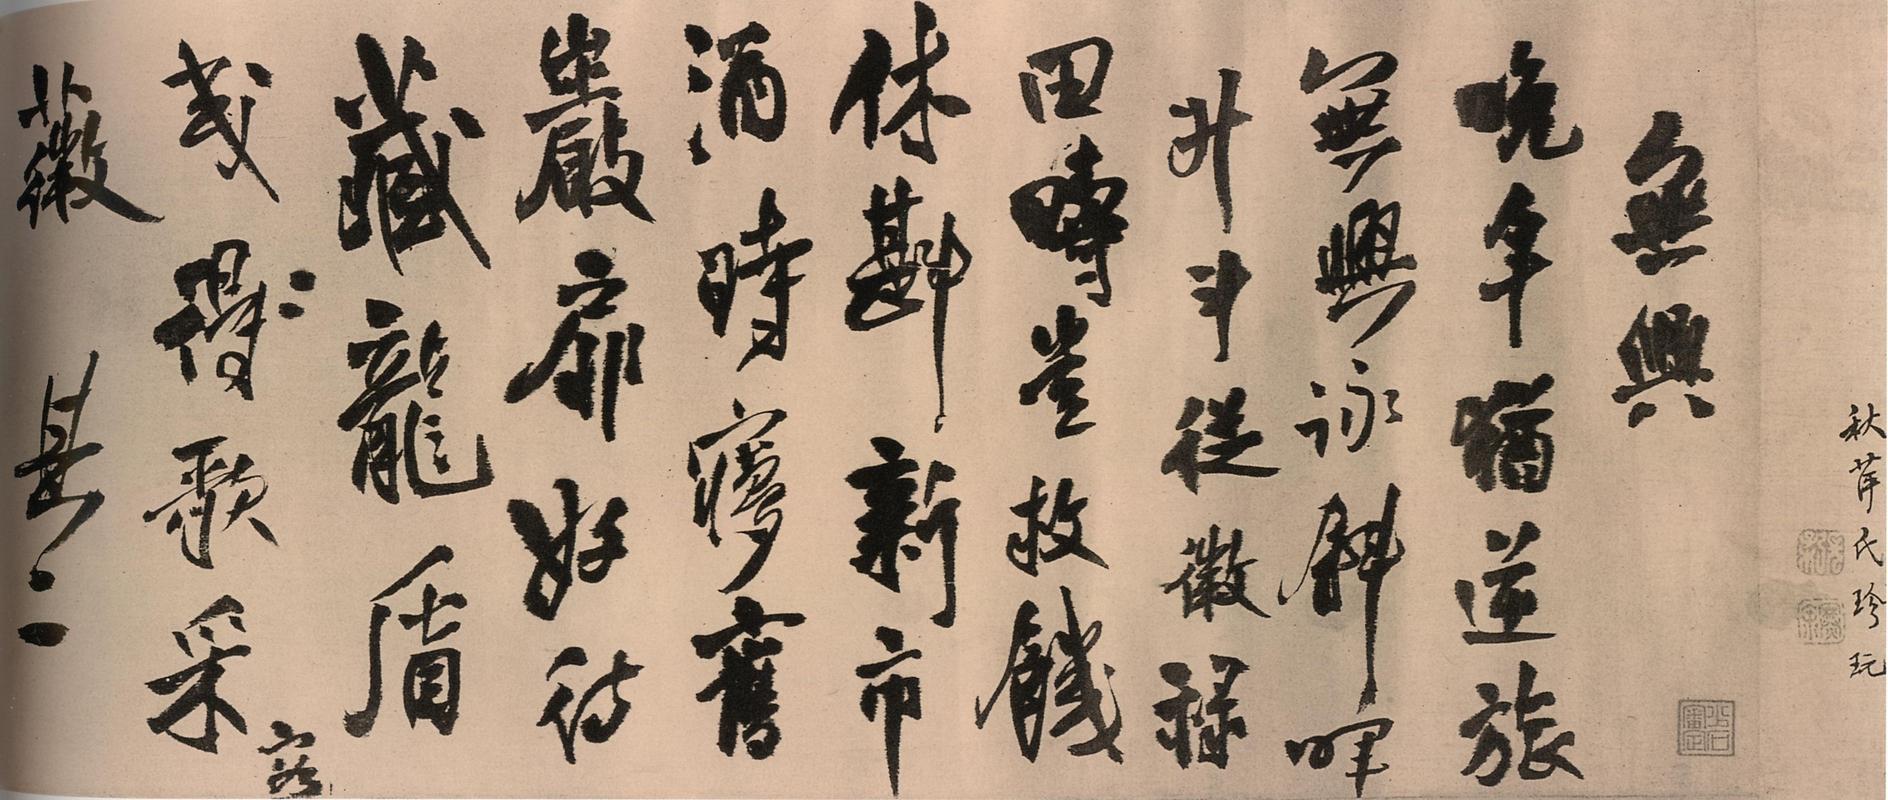 秋萍氏珍玩
無興
晚年猶逆旅
無興詠斜暉
升斗從微祿
田疇豈救饑
休斟新市
酒時夢舊
巖扉好待
藏龍盾
容
我得歌采
薇其二